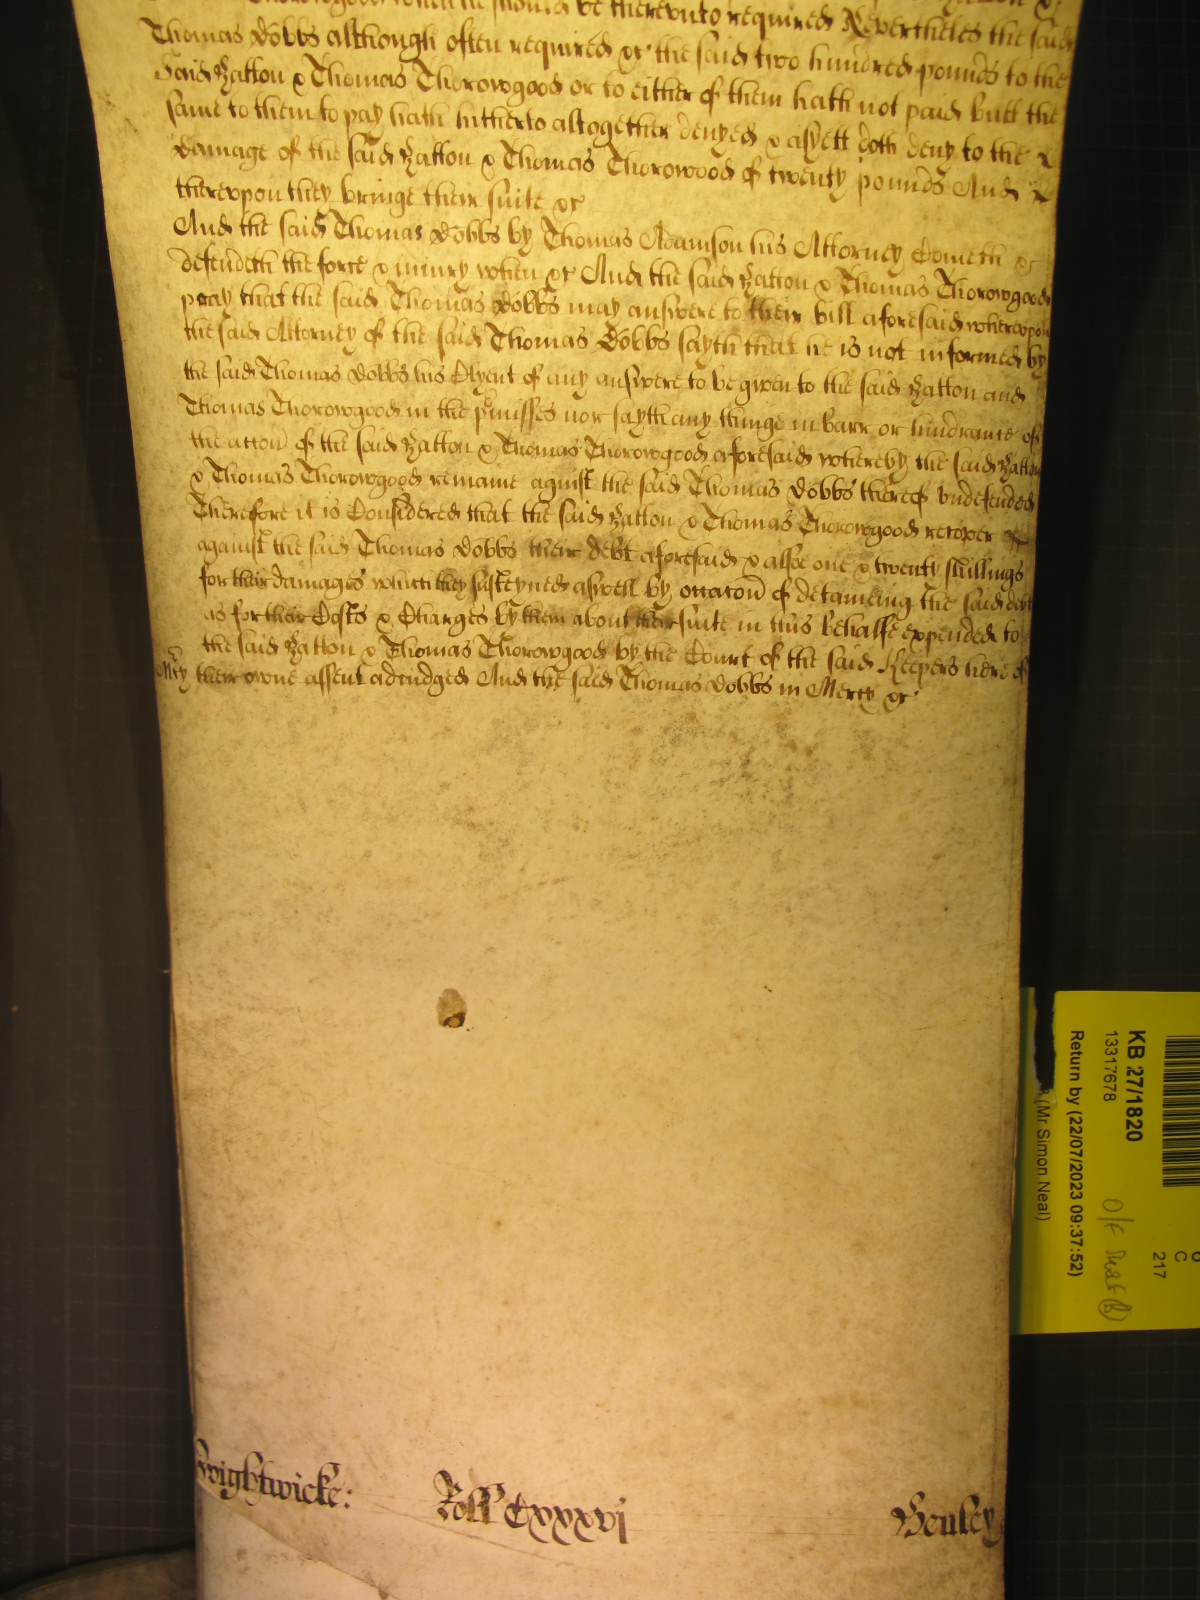 when he should be therevnto required Nevertheles the said
Thomas Dobbs although often required &c the said two hundred pounds to the
said Hatton & Thomas Thorowgood or to either of them hath not paid butt the
same to them to pay hath hitherto altogether denyed & asyett doth deny to the
damage of the said Hatton & Thomas Thorowood of twenty pounds And
therevpon they bringe their suite &c
And the said Thomas Dobbs by Thomas Adamson his Attorney Cometh &c
defendeth the force & iniury when &c And the said Hatton & Thomas Thorowgood
pray that the said Thomas Dobbs may answere to their bill aforesaid wherevpon
the said Attorney of the said Thomas Dobbs sayth that he is not informed by
the said Thomas Dobbs his Clyent of any answere to be given to the said Hatton and
Thomas Thorowgood in the p'misses nor sayth any thinge in barr or hindrance of
the accon of the said Hatton & Thomas Thorowgood aforesaid whereby the said Hatton
& Thomas Thorowgood remaine against the said Thomas Dobbs thereof vndefended
Therefore it is Considered that the said Hatton & Thomas Thorowgood recover
against the said Thomas Dobbs their debt aforesaid & alsoe one & twenty shillings
for their damages which they susteyned aswell by occacon of detaineing the said debt
as for their Costs & Charges by them about their suite in this behalfe expended to
the said Hatton & Thomas Thorowgood by the Court of the said Keepers here of
m'cy their owne assent adiudged And the said Thomas Dobbs in Mercy &c
Wightwicke: Roll Cxxxvj Henley
KB 27/1820
13317678
Return by (22/07/2023 09:37:52)
(Mr Simon Neal)
C
217
O/F Shelf (B)